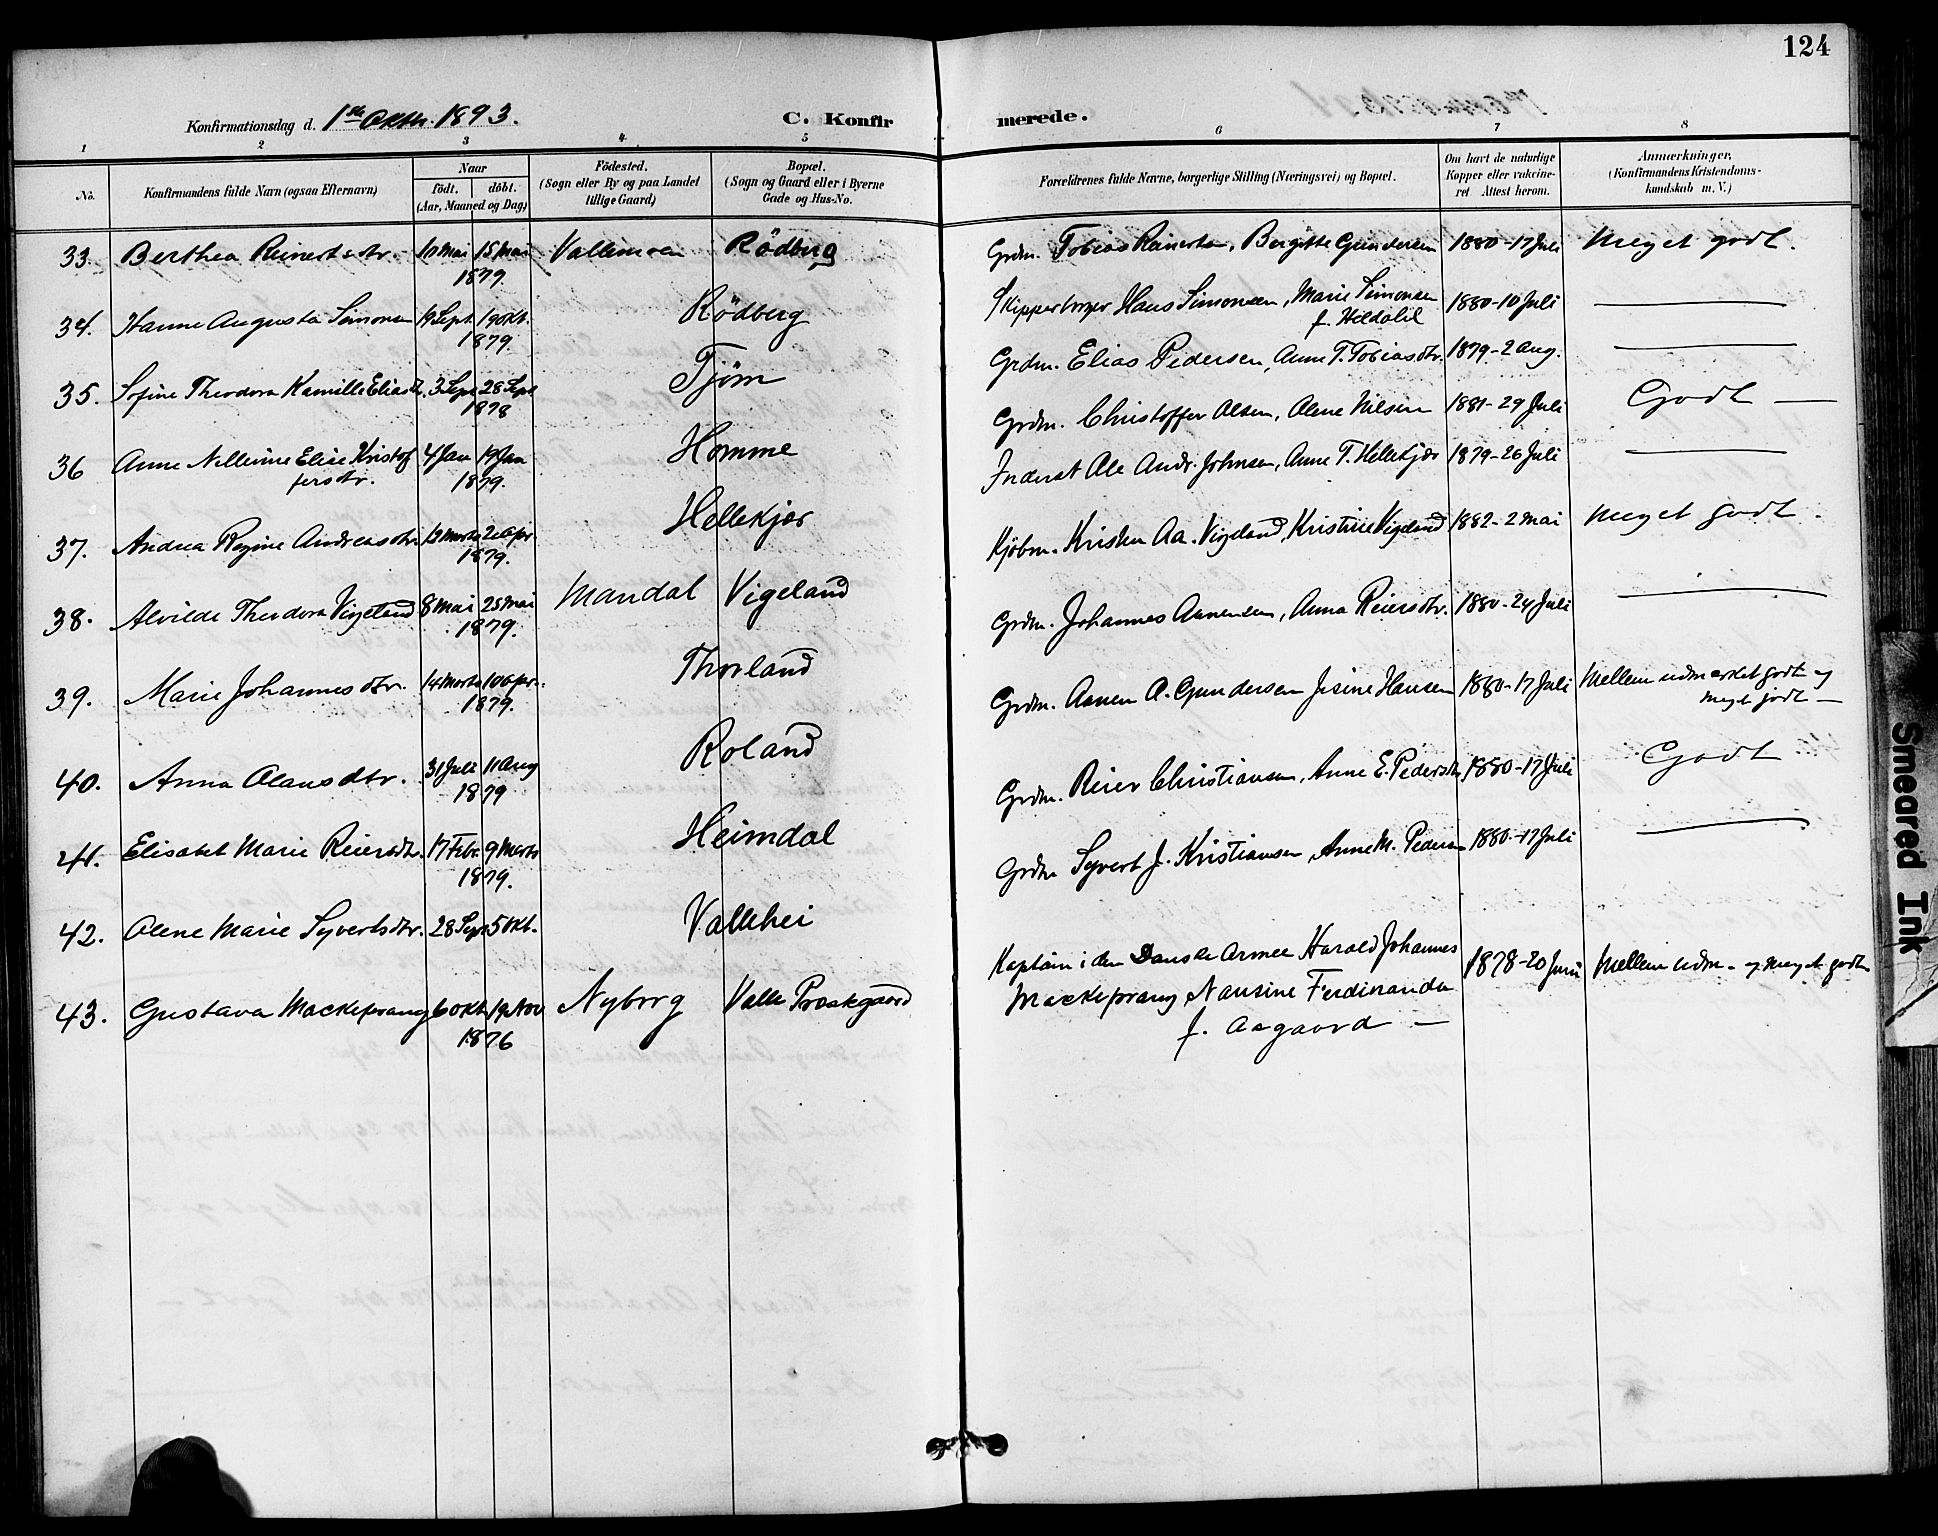 124
Konfirmationsdag d. 1ste Oktbr. 1893.
C. Konfirmerede.
1 2 3 4 5 6 7 8
No.
Konfirmandens fulde Navn (ogsaa Efternavn)
Naar
födt. döbt.
(Aar, Maaned og Dag)
Födested.
(Sogn eller By og paa Landet
tillige Gaard)
Bopæl.
(Sogn og Gaard eller i Byerne
Gade og Hus-No.
Forældrenes fulde Navne, borgerlige Stilling (Næringsvei) og Bopæl.
Om havt de naturlige
Kopper eller vakcine-
ret Attest herom.
Anmærkninger,
(Konfirmandens Kristendoms-
kundskab m. V.)
33. Berthea Reinertsdtr. 10 Mai 15 Mai 1879 Vallemoen Rödberg Grdm. Tobias Reinertsen, Bergitte Gundersen 1880-17 Juli Meget godt.
34. Hanne Augusta Simonsen 9 Sept. 19 Okt. 1879. Rödberg Skipperborger Hans Simonsen, Marie Simonsen 1880-10 Juli
35. Sofine Theodora Kamille Eliasdtr. 3 Sept 28 Sept 1878 Tjöm Grdm. Elias Pedersen, Anne T. Tobiasdtr. 1879-2 Aug.
36 Anne Nellerine Elise Kristof
fersdtr. 4 Jan 19 Jan 1879. Homme Grdm. Christoffer Olsen, Olene Nilsen 1881-29 Juli Godt —
37. Andrea Regine Andreasdtr. 13 Marts 20 Apr 1879. Hellekjær Inderst Ole Andr. Johnsen, Anne T. Hellekjær 1879-26 Juli
38. Alvilde Theodora Vigeland 8 Mai 25 Mai 1879. Mandal Vigeland Kjöbm. Kristen Aa. Vigeland, Kristine Vigeland 1882-2 Mai Meget godt.
39. Marie Johannesdtr. 14 Marts 10 Apr. 1879. Thorland Grdm. Johannes Aanensen, Anna Reiersdtr. 1880-24 Juli
40. Anna Olausdtr. 31 Juli 11 Aug 1879 Roland Grdm. Aanen A. Gundersen Jesine Hansen 1880-17 Juli Mellem udmærket godt og
meget godt —
41. Elisabet Marie Reiersdtr. 17 Febr 9 Marts 1879. Heimdal Grdm. Reier Christiansen, Anne E. Pedersdtr. 1880-17 Juli Godt
42. Olene Marie Syvertsdtr. 28 Sept 5 Okt. Vallehei Grdm Syvert J. Kristiansen, Anne M. Pedersen 1880-17 Juli
43. Gustava Mackeprang 6 Okt 19 Nov 1876 Nyborg Valle Præstgaard Kaptein i den Danske Armee Harald Johannes
Mackeprang, Nansine Ferdinanda
f. Aagaard — 1878-20 Juni Mellem udm. og meget godt
Smeared Ink